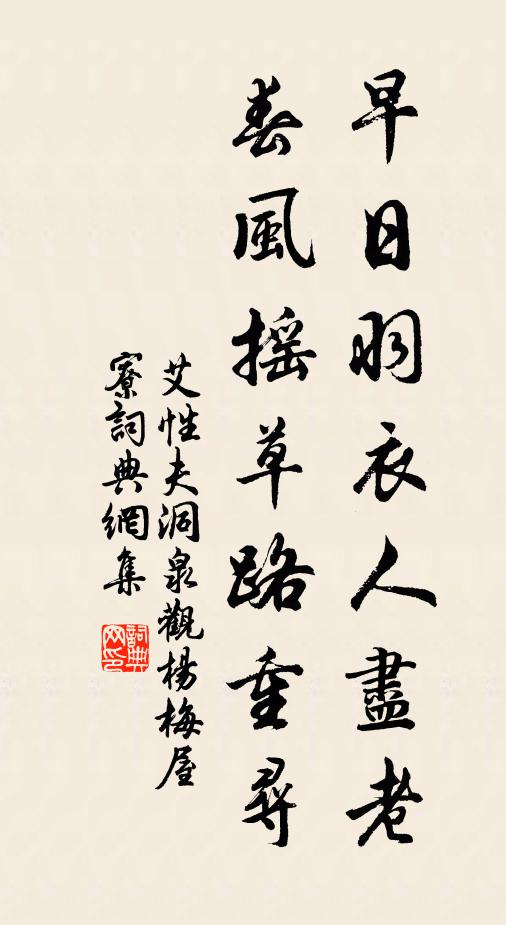 早日羽衣人盡老
春風摇草路重尋
艾性夫洞泉觀楊梅屋
寮詞典網集
詞典
网印